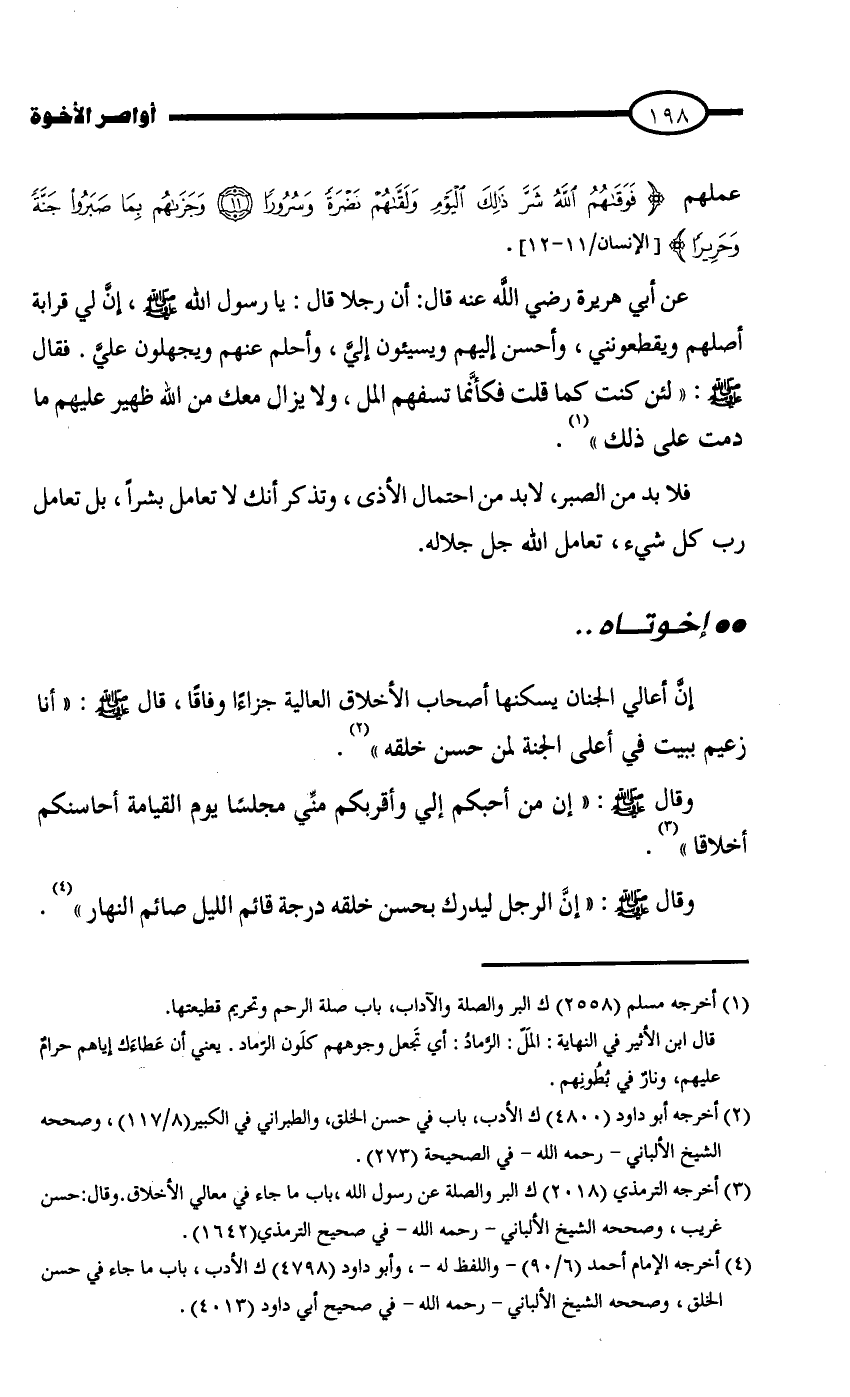 ١٩٨
أواصر الأخوة
عملهم ﴿ فَوَقَىٰهُمُ ٱللَّهُ شَرَّ ذَٰلِكَ ٱلْيَوْمِ وَلَقَّىٰهُمْ نَضْرَةً وَسُرُورًا ۝١١ وَجَزَىٰهُم بِمَا صَبَرُوا۟ جَنَّةً
وَحَرِيرًا ﴾ [الإنسان/١١-١٢] .
عن أبي هريرة رضي اللَّه عنه قال: أن رجلا قال : يا رسول الله ﷺ ، إنَّ لي قرابة
أصلهم ويقطعونني ، وأحسن إليهم ويسيئون إليَّ ، وأحلم عنهم ويجهلون عليَّ . فقال
ﷺ : « لئن كنت كما قلت فكأنَّما تسفهم المل ، ولا يزال معك من الله ظهير عليهم ما
دمت على ذلك »(١) .
فلا بد من الصبر، لابد من احتمال الأذى ، وتذكر أنك لا تعامل بشراً ، بل تعامل
رب كل شيء ، تعامل الله جل جلاله.
●● إخـوتـــاه ..
إنَّ أعالي الجنان يسكنها أصحاب الأخلاق العالية جزاءًا وفاقًا ، قال ﷺ : « أنا
زعيم ببيت في أعلى الجنة لمن حسن خلقه »(٢) .
وقال ﷺ : « إن من أحبكم إلي وأقربكم منِّي مجلسًا يوم القيامة أحاسنكم
أخلاقا »(٣) .
وقال ﷺ : « إنَّ الرجل ليدرك بحسن خلقه درجة قائم الليل صائم النهار »(٤) .
(١) أخرجه مسلم (٢٥٥٨) ك البر والصلة والآداب، باب صلة الرحم وتحريم قطيعتها.
قال ابن الأثير في النهاية : المَلّ : الرَّمادُ : أي تَجعل وجوههم كلَون الرَّماد . يعني أن عَطاءَك إياهم حرامٌ
عليهم، ونارٌ في بُطُونِهم .
(٢) أخرجه أبو داود (٤٨٠٠) ك الأدب، باب في حسن الخلق، والطبراني في الكبير(١١٧/٨) ، وصححه
الشيخ الألباني - رحمه الله - في الصحيحة (٢٧٣) .
(٣) أخرجه الترمذي (٢٠١٨) ك البر والصلة عن رسول الله ،باب ما جاء في معالي الأخلاق.وقال:حسن
غريب ، وصححه الشيخ الألباني - رحمه الله - في صحيح الترمذي(١٦٤٢) .
(٤) أخرجه الإمام أحمد (٩٠/٦) - واللفظ له - ، وأبو داود (٤٧٩٨) ك الأدب ، باب ما جاء في حسن
الخلق ، وصححه الشيخ الألباني - رحمه الله - في صحيح أبي داود (٤٠١٣) .